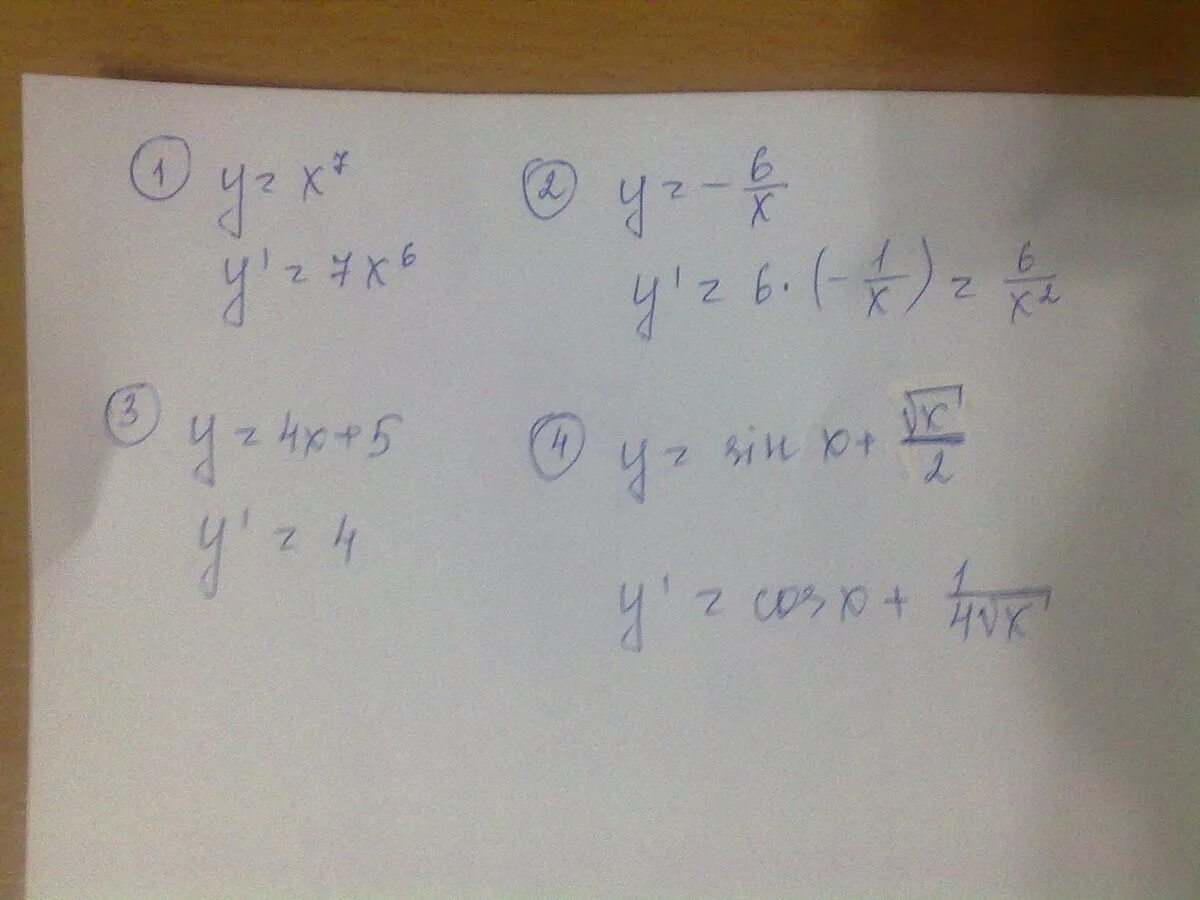 ① y = x⁷
y' = 7x⁶
② y = - 6/x
y' = 6 · (- 1/x) = 6/x²
③ y = 4x+5
y' = 4
④ y = sin x + √x/2
y' = cos x + 1/4√x